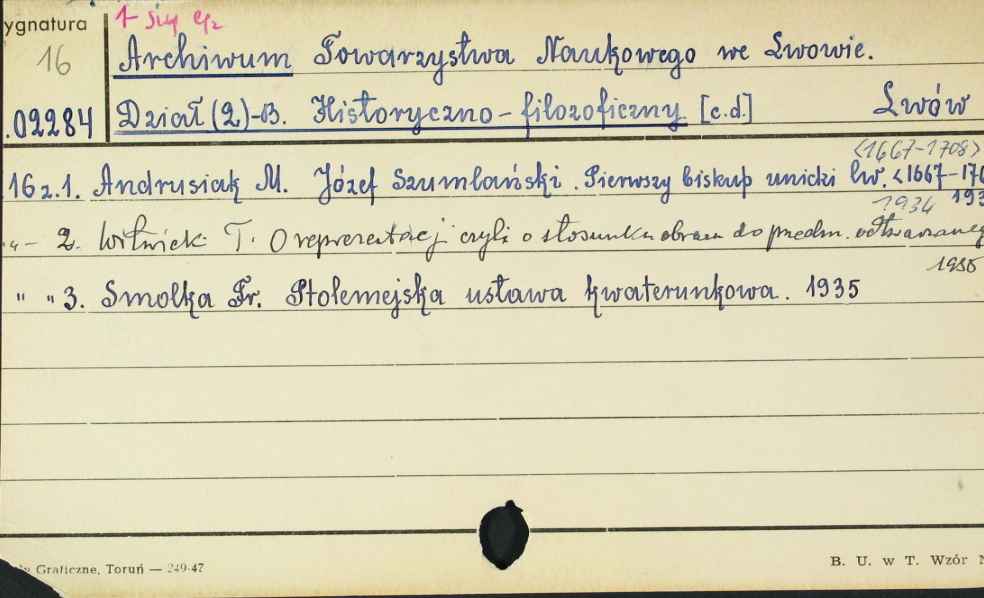 ygnatura
16
Archiwum Towarzystwa Naukowego we Lwowie.
.02284
Dział (2)-B. Historyczno-filozoficzny [c.d.] Lwów
<1667-1708>
16 z. 1. Andrusiak M. Józef Szumlański. Pierwszy biskup unicki lw. <1667-170
1934 193
" - 2. Witwicki T. O reprezentacji czyli o stosunku obrazu do przedm. odtwarzaneg
1935
" " 3. Smolka Fr. Ptolemejska ustawa kwaterunkowa. 1935
Graficzne, Toruń — 249-47
B. U. w T. Wzór N